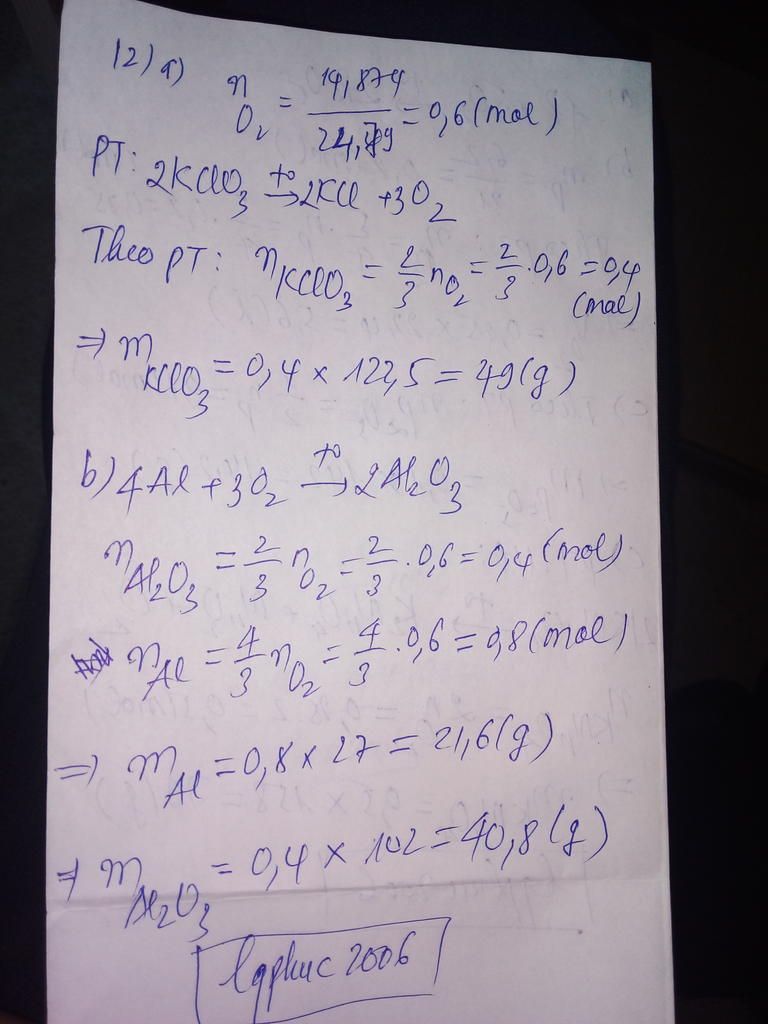 12) a) n O₂ = 14,874 / 24,79 = 0,6 (mol)
PT: 2KClO₃ t° → 2KCl + 3O₂
Theo PT: n KClO₃ = 2/3 n O₂ = 2/3 . 0,6 = 0,4 (mol)
⇒ m KClO₃ = 0,4 × 122,5 = 49 (g)
b) 4Al + 3O₂ t° → 2Al₂O₃
n Al₂O₃ = 2/3 n O₂ = 2/3 . 0,6 = 0,4 (mol)
n Al = 4/3 n O₂ = 4/3 . 0,6 = 0,8 (mol)
⇒ m Al = 0,8 × 27 = 21,6 (g)
⇒ m Al₂O₃ = 0,4 × 102 = 40,8 (g)
lqphuc 2006